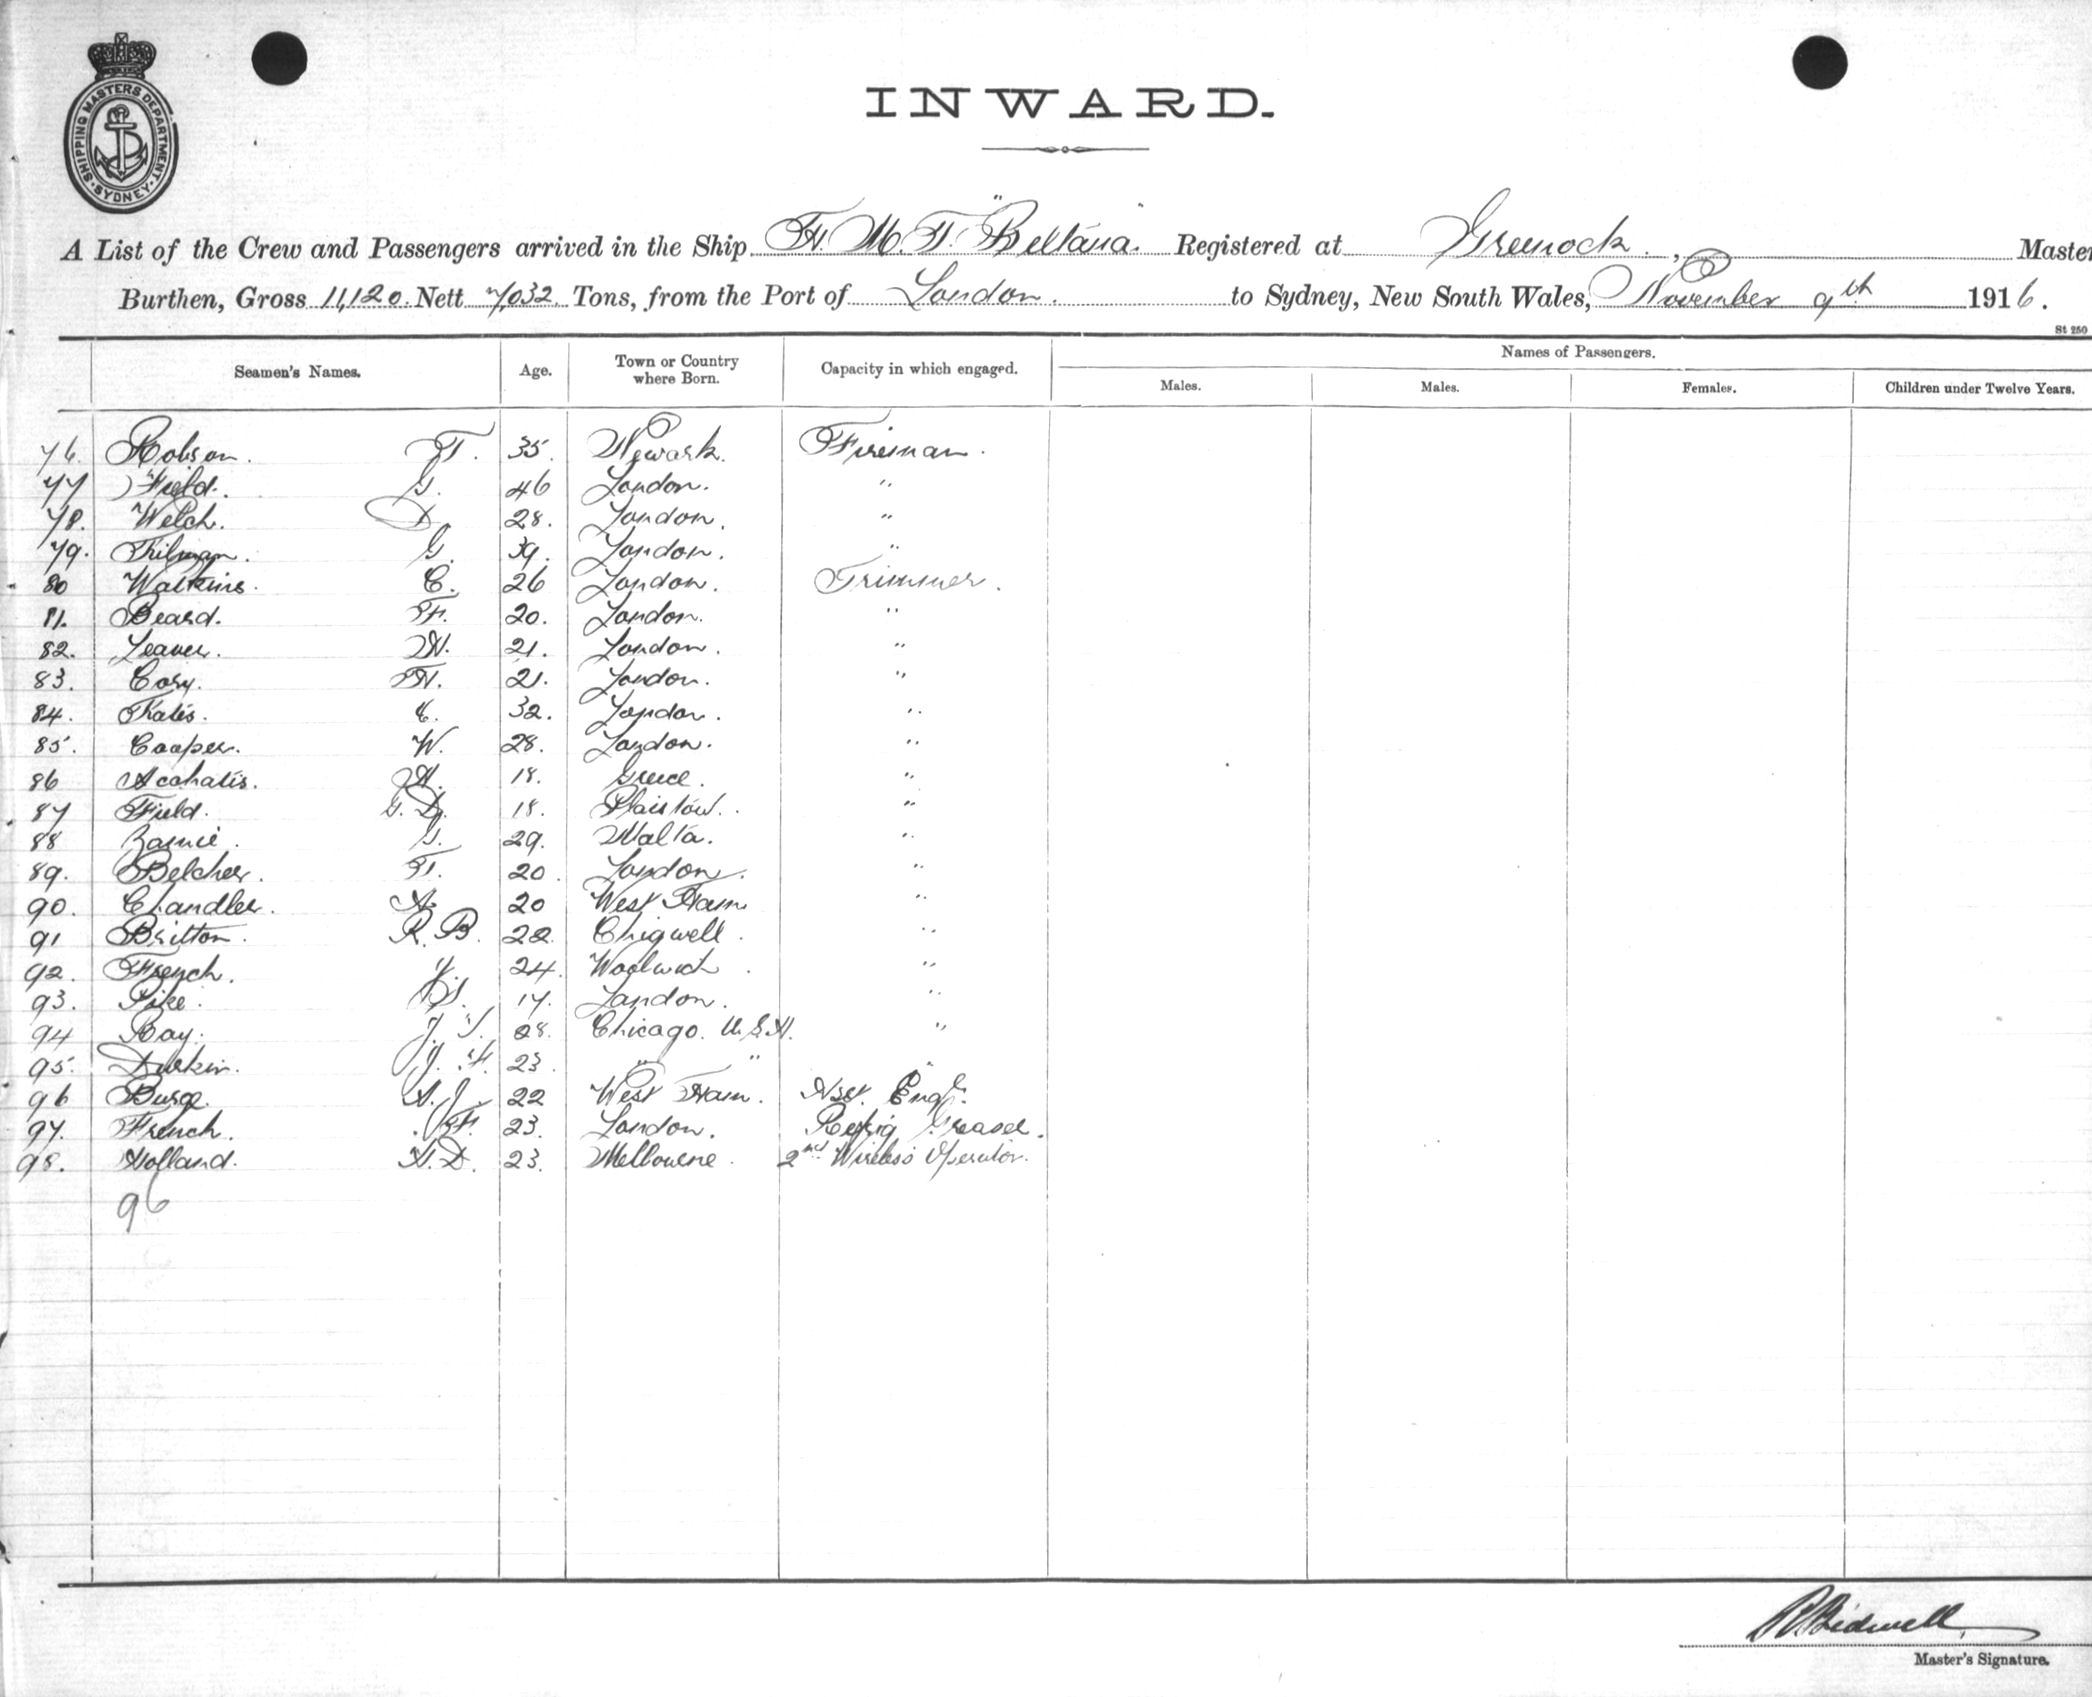 SHIPPING MASTERS DEPARTMENT
· SYDNEY ·
INWARD.
A List of the Crew and Passengers arrived in the Ship H. M. T. "Beltana" Registered at Greenock, Master
Burthen, Gross 11,120 Nett 7,032 Tons, from the Port of London. to Sydney, New South Wales, November 9th 1916.
St 250
Seamen's Names. Age. Town or Country where Born. Capacity in which engaged. Names of Passengers.
Males. Males. Females. Children under Twelve Years.
76. Robson. T. 35. Newark. Fireman.
77 Field. G. 46 London. "
78. Welch. D 28. London. "
79. G. 39. London. "
80 Watkins. C. 26 London. Trimmer.
81. Beard. F. 20. London. "
82. Leaver. W. 21. London. "
83. Cory. 21. London. "
84. 32. London. "
85. Cooper. W. 28. London. "
86 18. Greece. "
87 Field. G. D. 18. Plaistow. "
88 G. 29. Malta. "
89. Belcher. F. 20. London. "
90. Chandler. A. 20 West Ham "
91 Britton. R. B. 22. Chigwell. "
92. French. 24. Woolwich. "
93. Pike. 17. London. "
94 Ray. J. 28. Chicago. U.S.A. "
95. Durkin. J. 23. " " "
96 Burge. A. J. 22 West Ham. Asst. Engr.
97. French. F. 23. London. Refrig Greaser.
98. Holland. H. D. 23. Melbourne. 2nd Wireless Operator.
96
R Bidwell
Master's Signature.